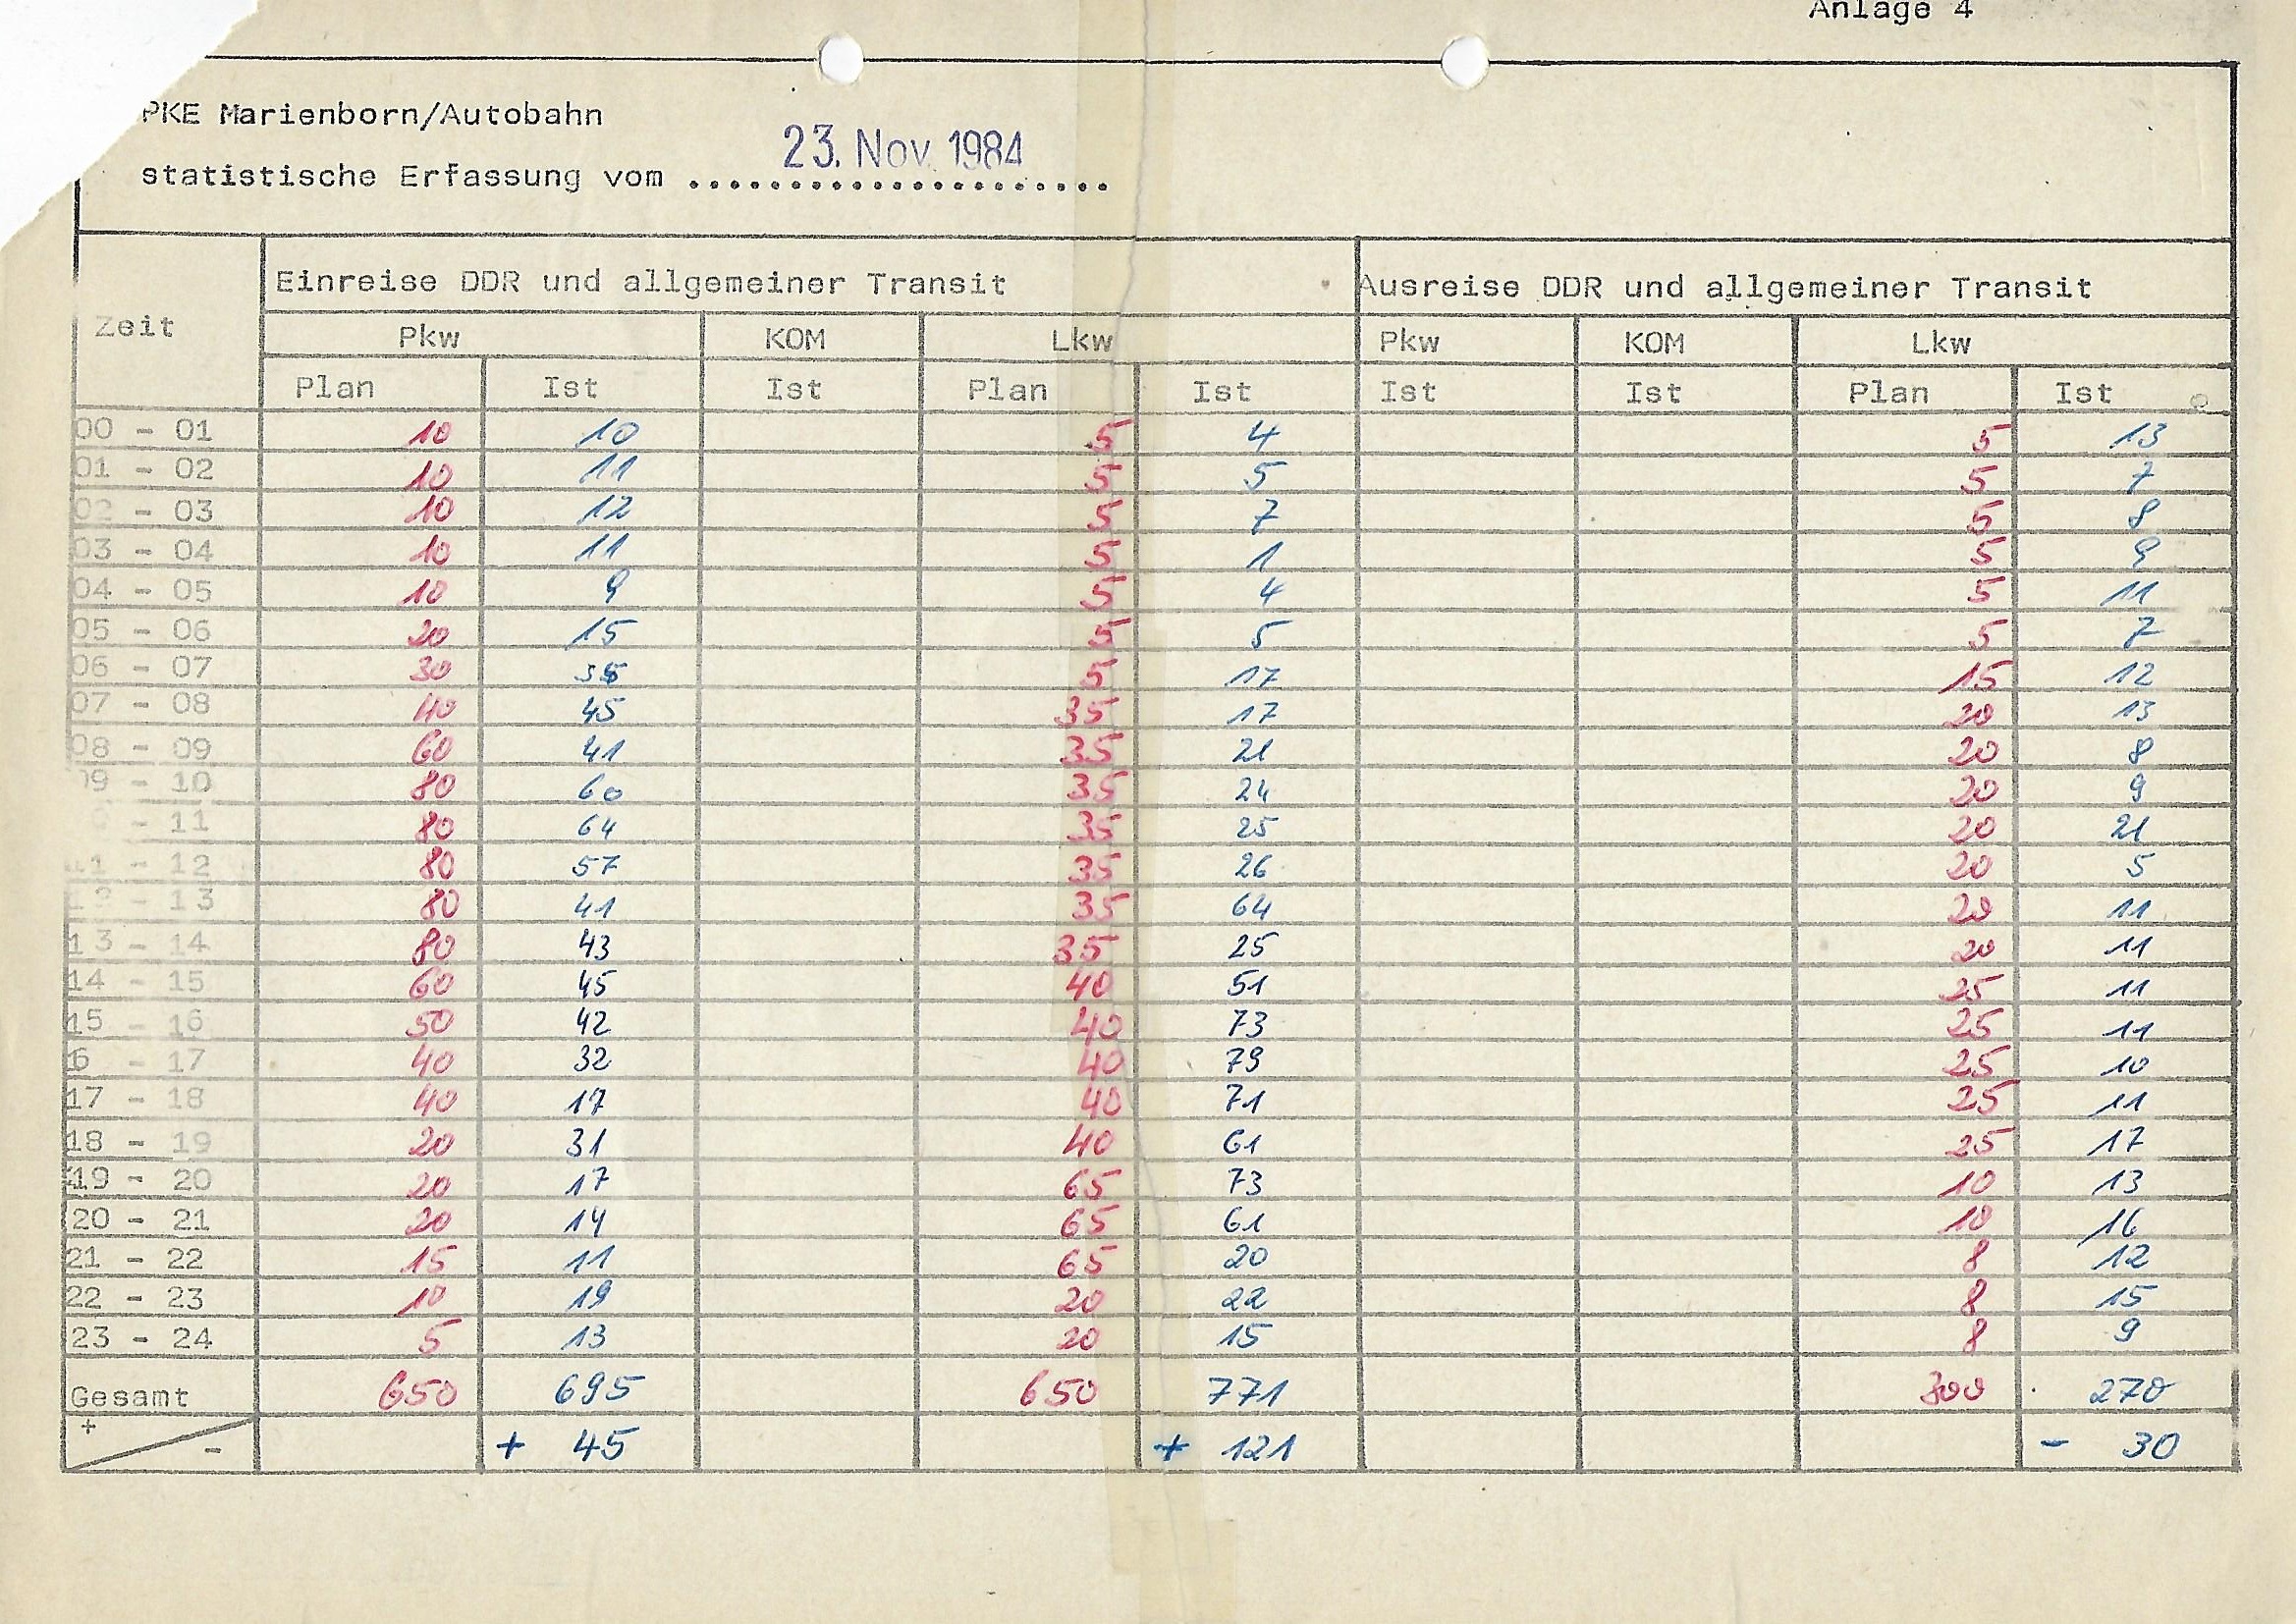 Anlage 4
PKE Marienborn/Autobahn
23. Nov. 1984
statistische Erfassung vom ......................
Zeit Einreise DDR und allgemeiner Transit Ausreise DDR und allgemeiner Transit
Pkw KOM Lkw Pkw KOM Lkw
Plan Ist Ist Plan Ist Ist Ist Plan Ist
00 - 01 10 10 5 4 5 13
01 - 02 10 11 5 5 5 7
02 - 03 10 12 5 7 5 8
03 - 04 10 11 5 1 5 9
04 - 05 10 9 5 4 5 11
05 - 06 20 15 5 5 5 7
06 - 07 30 5 17 15 12
07 - 08 40 45 35 17 20 13
08 - 09 60 41 35 21 20 8
09 - 10 80 60 35 24 20 9
- 11 80 64 35 25 20 21
11 - 12 80 57 35 26 20 5
12 - 13 80 41 35 64 20 11
13 - 14 80 43 35 25 20 11
14 - 15 60 45 40 51 25 11
15 - 16 50 42 40 73 25 11
16 - 17 40 32 40 79 25 10
17 - 18 40 17 40 71 25 11
18 - 19 20 31 40 61 25 17
19 - 20 20 17 65 73 10 13
20 - 21 20 14 65 61 10 16
21 - 22 15 11 65 20 8 12
22 - 23 10 19 20 22 8 15
23 - 24 5 13 20 15 8 9
Gesamt 650 695 650 771 300 270
+ - + 45 + 121 - 30